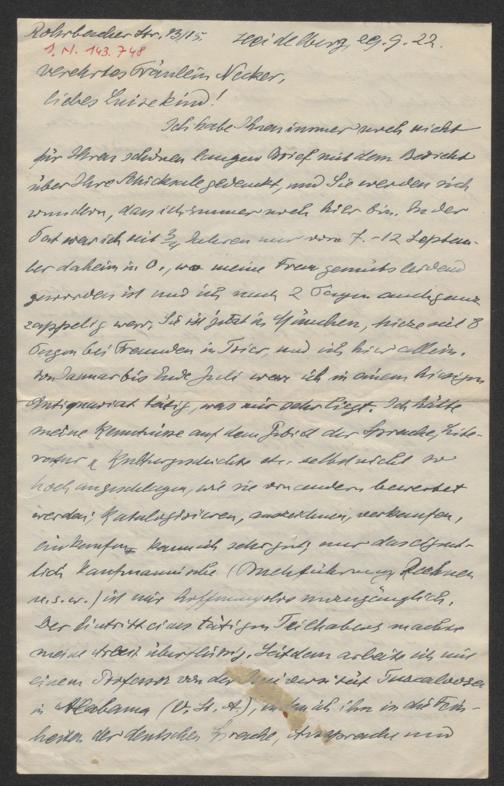 Rohrbacher Str. 13/15. Heidelberg 29.9.22.
I. N. 143.748
Verehrtes Fräulein Necker,
liebes Luisekind!
Ich habe Ihnen immer noch nicht
für Ihren schönen langen Brief mit dem Bericht
über Ihre Schicksale gedankt, und Sie werden sich
wundern, dass ich immer noch hier bin. In der
Tat war ich seit 3/4 Jahren nur vom 7.-12 Septem-
ber daheim in O., wo meine Frau gemütsleidend
geworden ist und ich nach 2 Tagen auch ganz
zappelig war. Sie ist jetzt in München, seit 8
Tagen bei Freunden in Trier und ich hier allein.
Von Januar bis Ende Juli war ich in einem hiesigen
Antiquariat tätig, was mir sehr liegt. Ich hätte
meine Kenntnisse auf dem Gebiet der Sprache, Lite-
ratur & Kulturgeschichte etc. selbst nicht so
hoch angeschlagen, wie sie von andern bewertet
werden; Katalogisieren, auszeichnen, verkaufen,
einkaufen kann ich sehr gut, nur das eigent-
lich kaufmännische (Buchführung, Rechnen
u.s.w.) ist mir hoffnungslos unzugänglich.
Der Eintritt eines tätigen Teilhabers machte
meine Arbeit überflüssig. Seitdem arbeite ich mit
einem Professor von der Universität Tuscaloosa
in Alabama (V. St. A.), indem ich ihn in die Fein-
heiten der deutschen Sprache, Aussprache und